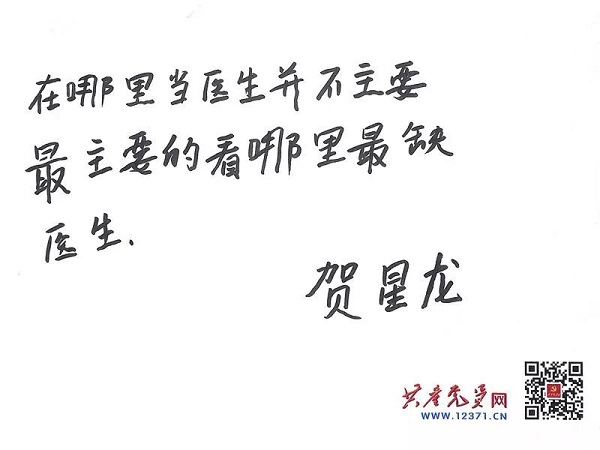 在哪里当医生并不主要
最主要的看哪里最缺
医生.
贺星龙
共产党员网
WWW.12371.CN